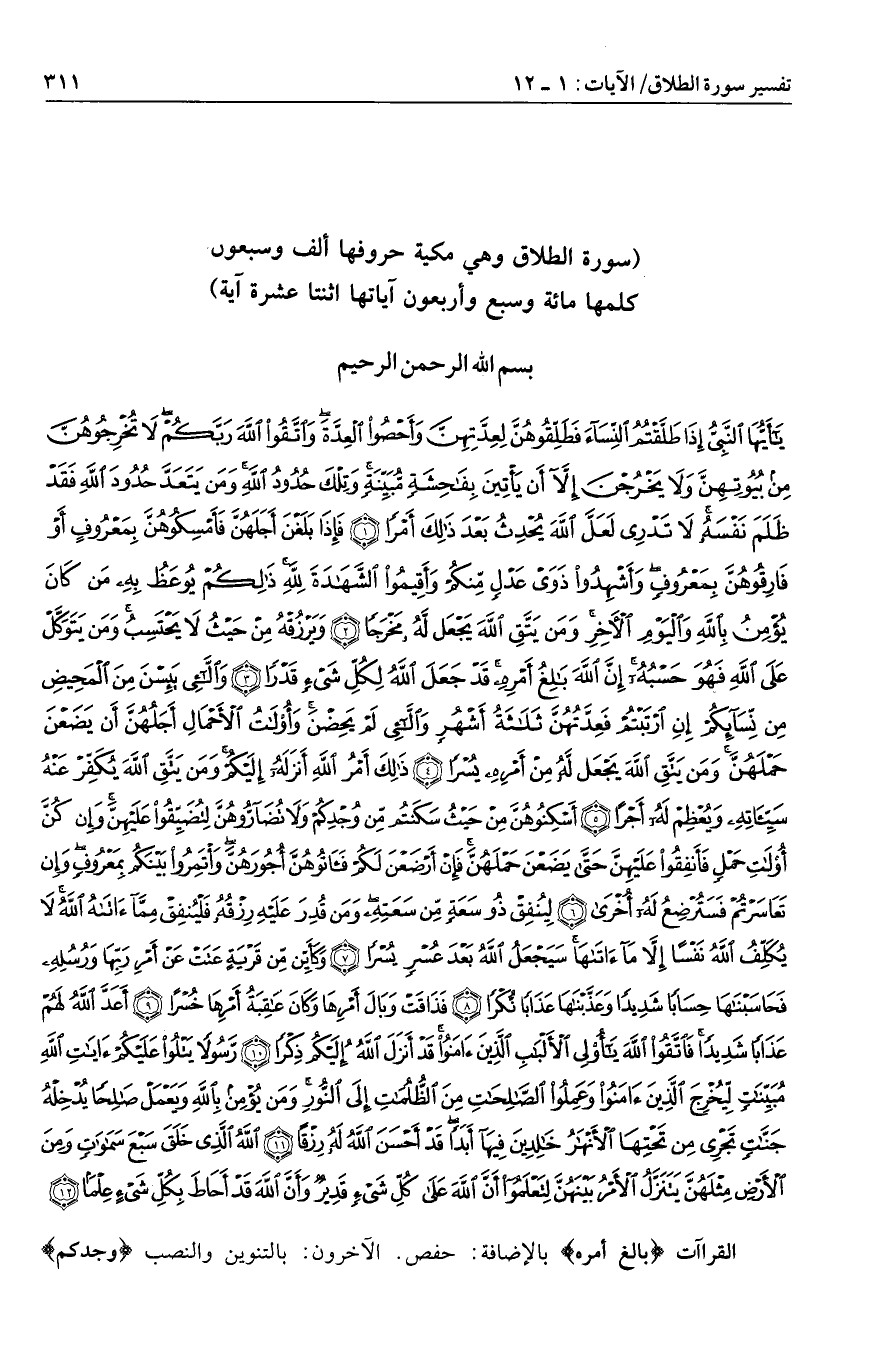 تفسير سورة الطلاق/ الآيات: ١ - ١٢ ٣١١
(سورة الطلاق وهي مكية حروفها ألف وسبعون
كلمها مائة وسبع وأربعون آياتها اثنتا عشرة آية)
بسم الله الرحمن الرحيم
يَٰٓأَيُّهَا ٱلنَّبِىُّ إِذَا طَلَّقْتُمُ ٱلنِّسَآءَ فَطَلِّقُوهُنَّ لِعِدَّتِهِنَّ وَأَحْصُوا۟ ٱلْعِدَّةَ ۖ وَٱتَّقُوا۟ ٱللَّهَ رَبَّكُمْ ۖ لَا تُخْرِجُوهُنَّ
مِنۢ بُيُوتِهِنَّ وَلَا يَخْرُجْنَ إِلَّآ أَن يَأْتِينَ بِفَٰحِشَةٍ مُّبَيِّنَةٍ ۚ وَتِلْكَ حُدُودُ ٱللَّهِ ۚ وَمَن يَتَعَدَّ حُدُودَ ٱللَّهِ فَقَدْ
ظَلَمَ نَفْسَهُۥ ۚ لَا تَدْرِى لَعَلَّ ٱللَّهَ يُحْدِثُ بَعْدَ ذَٰلِكَ أَمْرًا ﴿١﴾ فَإِذَا بَلَغْنَ أَجَلَهُنَّ فَأَمْسِكُوهُنَّ بِمَعْرُوفٍ أَوْ
فَارِقُوهُنَّ بِمَعْرُوفٍ ۖ وَأَشْهِدُوا۟ ذَوَىْ عَدْلٍ مِّنكُمْ وَأَقِيمُوا۟ ٱلشَّهَٰدَةَ لِلَّهِ ۚ ذَٰلِكُمْ يُوعَظُ بِهِۦ مَن كَانَ
يُؤْمِنُ بِٱللَّهِ وَٱلْيَوْمِ ٱلْءَاخِرِ ۚ وَمَن يَتَّقِ ٱللَّهَ يَجْعَل لَّهُۥ مَخْرَجًا ﴿٢﴾ وَيَرْزُقْهُ مِنْ حَيْثُ لَا يَحْتَسِبُ ۚ وَمَن يَتَوَكَّلْ
عَلَى ٱللَّهِ فَهُوَ حَسْبُهُۥٓ ۚ إِنَّ ٱللَّهَ بَٰلِغُ أَمْرِهِۦ ۚ قَدْ جَعَلَ ٱللَّهُ لِكُلِّ شَىْءٍ قَدْرًا ﴿٣﴾ وَٱلَّٰٓـِٔى يَئِسْنَ مِنَ ٱلْمَحِيضِ
مِن نِّسَآئِكُمْ إِنِ ٱرْتَبْتُمْ فَعِدَّتُهُنَّ ثَلَٰثَةُ أَشْهُرٍ وَٱلَّٰٓـِٔى لَمْ يَحِضْنَ ۚ وَأُو۟لَٰتُ ٱلْأَحْمَالِ أَجَلُهُنَّ أَن يَضَعْنَ
حَمْلَهُنَّ ۚ وَمَن يَتَّقِ ٱللَّهَ يَجْعَل لَّهُۥ مِنْ أَمْرِهِۦ يُسْرًا ﴿٤﴾ ذَٰلِكَ أَمْرُ ٱللَّهِ أَنزَلَهُۥٓ إِلَيْكُمْ ۚ وَمَن يَتَّقِ ٱللَّهَ يُكَفِّرْ عَنْهُ
سَيِّـَٔاتِهِۦ وَيُعْظِمْ لَهُۥٓ أَجْرًا ﴿٥﴾ أَسْكِنُوهُنَّ مِنْ حَيْثُ سَكَنتُم مِّن وُجْدِكُمْ وَلَا تُضَآرُّوهُنَّ لِتُضَيِّقُوا۟ عَلَيْهِنَّ ۚ وَإِن كُنَّ
أُو۟لَٰتِ حَمْلٍ فَأَنفِقُوا۟ عَلَيْهِنَّ حَتَّىٰ يَضَعْنَ حَمْلَهُنَّ ۚ فَإِنْ أَرْضَعْنَ لَكُمْ فَـَٔاتُوهُنَّ أُجُورَهُنَّ ۖ وَأْتَمِرُوا۟ بَيْنَكُم بِمَعْرُوفٍ ۖ وَإِن
تَعَاسَرْتُمْ فَسَتُرْضِعُ لَهُۥٓ أُخْرَىٰ ﴿٦﴾ لِيُنفِقْ ذُو سَعَةٍ مِّن سَعَتِهِۦ ۖ وَمَن قُدِرَ عَلَيْهِ رِزْقُهُۥ فَلْيُنفِقْ مِمَّآ ءَاتَىٰهُ ٱللَّهُ ۚ لَا
يُكَلِّفُ ٱللَّهُ نَفْسًا إِلَّا مَآ ءَاتَىٰهَا ۚ سَيَجْعَلُ ٱللَّهُ بَعْدَ عُسْرٍ يُسْرًا ﴿٧﴾ وَكَأَيِّن مِّن قَرْيَةٍ عَتَتْ عَنْ أَمْرِ رَبِّهَا وَرُسُلِهِۦ
فَحَاسَبْنَٰهَا حِسَابًا شَدِيدًا وَعَذَّبْنَٰهَا عَذَابًا نُّكْرًا ﴿٨﴾ فَذَاقَتْ وَبَالَ أَمْرِهَا وَكَانَ عَٰقِبَةُ أَمْرِهَا خُسْرًا ﴿٩﴾ أَعَدَّ ٱللَّهُ لَهُمْ
عَذَابًا شَدِيدًا ۖ فَٱتَّقُوا۟ ٱللَّهَ يَٰٓأُو۟لِى ٱلْأَلْبَٰبِ ٱلَّذِينَ ءَامَنُوا۟ ۚ قَدْ أَنزَلَ ٱللَّهُ إِلَيْكُمْ ذِكْرًا ﴿١٠﴾ رَّسُولًا يَتْلُوا۟ عَلَيْكُمْ ءَايَٰتِ ٱللَّهِ
مُبَيِّنَٰتٍ لِّيُخْرِجَ ٱلَّذِينَ ءَامَنُوا۟ وَعَمِلُوا۟ ٱلصَّٰلِحَٰتِ مِنَ ٱلظُّلُمَٰتِ إِلَى ٱلنُّورِ ۚ وَمَن يُؤْمِنۢ بِٱللَّهِ وَيَعْمَلْ صَٰلِحًا يُدْخِلْهُ
جَنَّٰتٍ تَجْرِى مِن تَحْتِهَا ٱلْأَنْهَٰرُ خَٰلِدِينَ فِيهَآ أَبَدًا ۖ قَدْ أَحْسَنَ ٱللَّهُ لَهُۥ رِزْقًا ﴿١١﴾ ٱللَّهُ ٱلَّذِى خَلَقَ سَبْعَ سَمَٰوَٰتٍ وَمِنَ
ٱلْأَرْضِ مِثْلَهُنَّ يَتَنَزَّلُ ٱلْأَمْرُ بَيْنَهُنَّ لِتَعْلَمُوٓا۟ أَنَّ ٱللَّهَ عَلَىٰ كُلِّ شَىْءٍ قَدِيرٌ وَأَنَّ ٱللَّهَ قَدْ أَحَاطَ بِكُلِّ شَىْءٍ عِلْمًۢا ﴿١٢﴾
القراآت ﴿بالغ أمره﴾ بالإضافة: حفص. الآخرون: بالتنوين والنصب ﴿وجدكم﴾